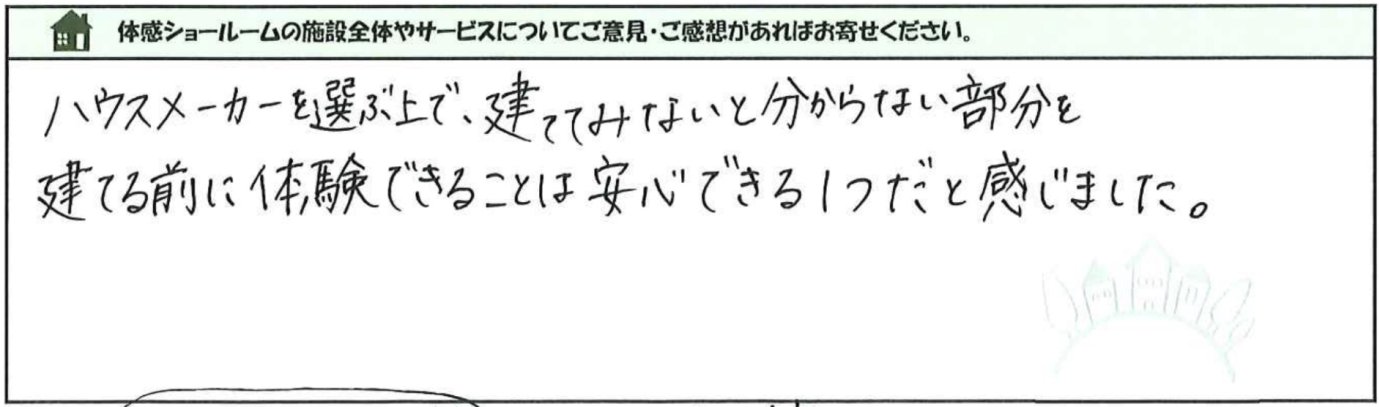 体感ショールームの施設全体やサービスについてご意見・ご感想があればお寄せください。
ハウスメーカーを選ぶ上で、建ててみないと分からない部分を
建てる前に体験できることは安心できる1つだと感じました。